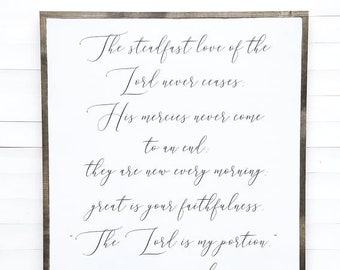 The steadfast love of the
Lord never ceases.
His mercies never come
to an end;
they are new every morning;
great is your faithfulness.
"The Lord is my portion,"